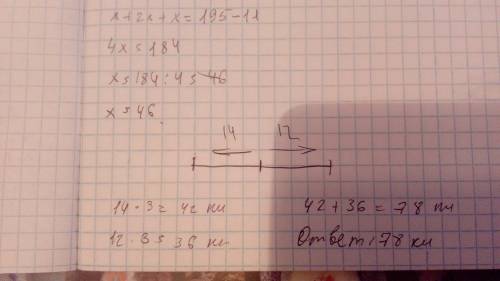 x+2x+x=195-11
4x=184
x=184:4=46
x=46.
14 12
14·3=42 км
12·3=36 км
42+36=78 км
Ответ:78 км